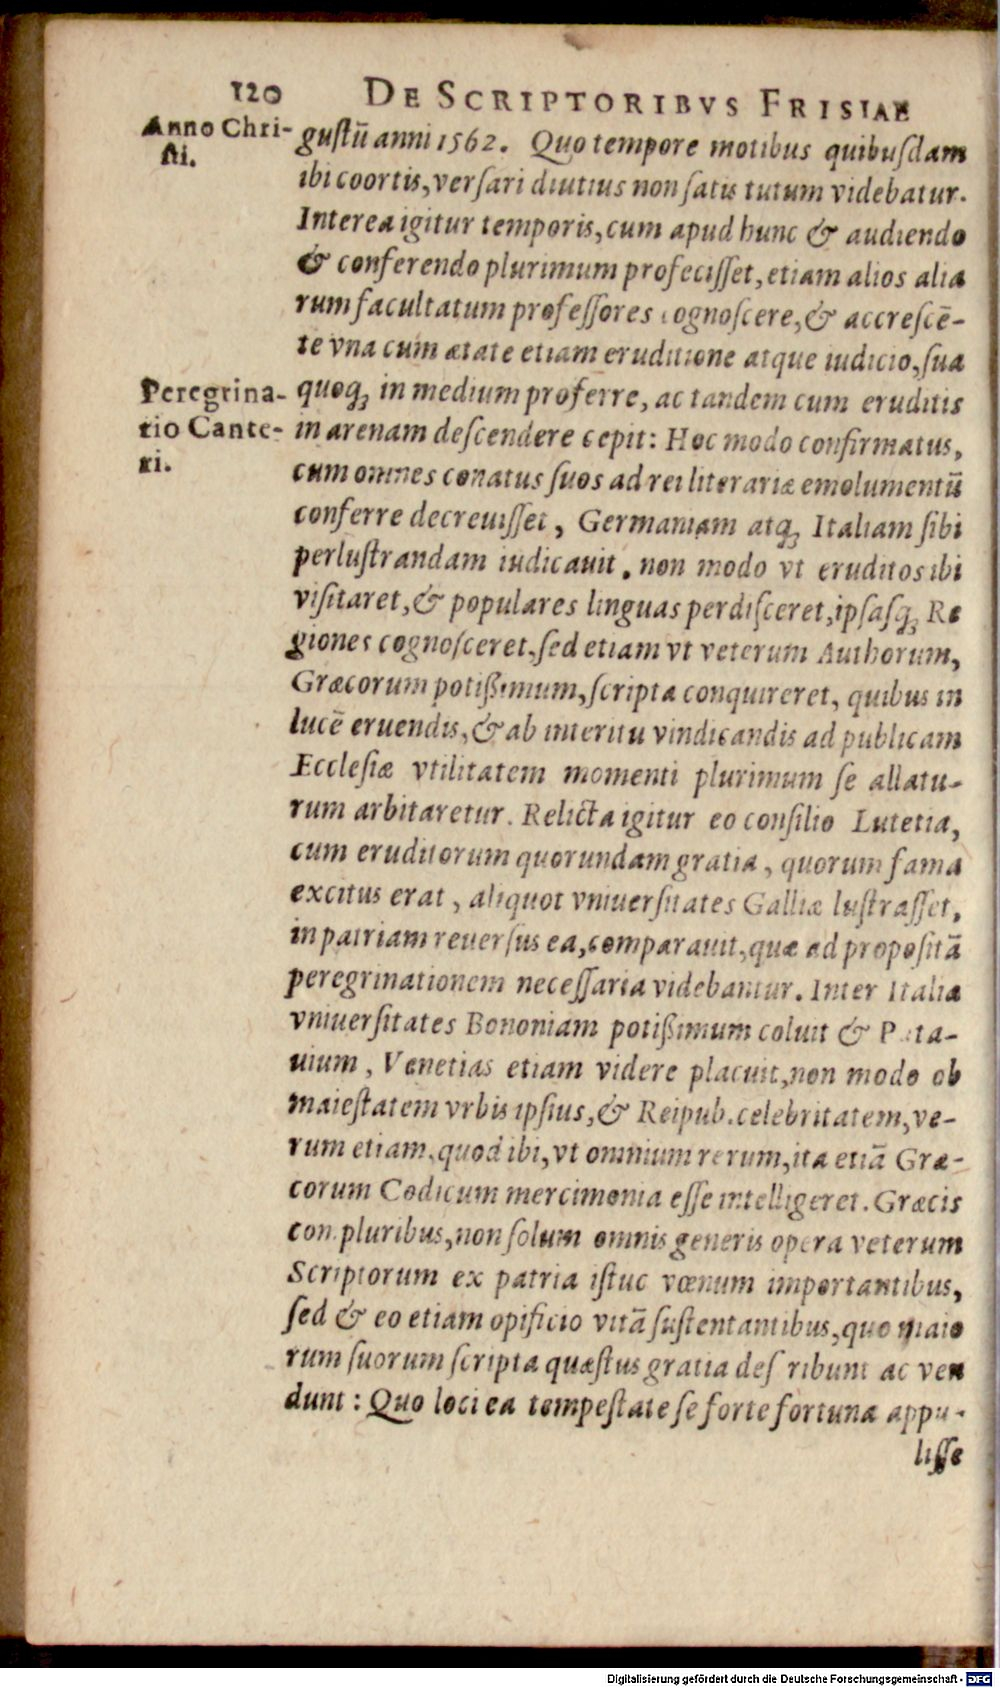 120 DE SCRIPTORIBVS FRISIAE
Anno Chri-
sti.
gustū anni 1562. Quo tempore motibus quibusdam
ibi coortis, versari diutius non satis tutum videbatur.
Interea igitur temporis, cum apud hunc & audiendo
& conferendo plurimum profecisset, etiam alios alia
rum facultatum professores cognoscere, & accrescē-
te vna cum ætate etiam eruditione atque iudicio, sua
Peregrina-
tio Cante-
ri.
quoqꝫ in medium proferre, ac tandem cum eruditis
in arenam descendere cepit: Hoc modo confirmatus,
cum omnes conatus suos ad rei literariæ emolumentū
conferre decreuisset, Germaniam atqꝫ Italiam sibi
perlustrandam iudicauit, non modo vt eruditos ibi
visitaret, & populares linguas perdisceret, ipsasqꝫ Re
giones cognosceret, sed etiam vt veterum Authorum,
Græcorum potißimum, scripta conquireret, quibus in
lucē eruendis, & ab interitu vindicandis ad publicam
Ecclesiæ vtilitatem momenti plurimum se allatu-
rum arbitaretur. Relicta igitur eo consilio Lutetia,
cum eruditorum quorundam gratia, quorum fama
excitus erat, aliquot vniuersitates Galliæ lustrasset,
in patriam reuersus ea, comparauit, quæ ad propositā
peregrinationem necessaria videbantur. Inter Italia
vniuersitates Bononiam potißimum coluit & Pata-
uium, Venetias etiam videre placuit, non modo ob
maiestatem vrbis ipsius, & Reipub. celebritatem, ve-
rum etiam, quod ibi, vt omnium rerum, ita etiā Græ-
corum Codicum mercimonia esse intelligeret. Græcis
compluribus, non solum omnis generis opera veterum
Scriptorum ex patria istuc vœnum importantibus,
sed & eo etiam opificio vitā sustentantibus, quo maio
rum suorum scripta quæstus gratia describunt ac ven
dunt: Quo loci ea tempestate se forte fortuna appu-
lisse
Digitalisierung gefördert durch die Deutsche Forschungsgemeinschaft - DFG